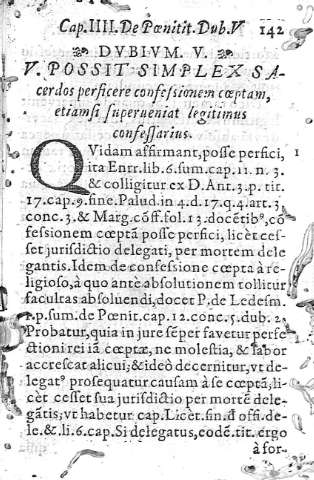 Cap.IIII. De Pœnitit. Dub.V 142
DVBIVM. V.
V. POSSIT SIMPLEX SA-
cerdos perficere confessionem cœptam,
etiamsi superueniat legitimus
confessarius.
QVidam affirmant, posse perfici, 1
ita Enrr. lib. 6. sum. cap. 11. n. 3.
& colligitur ex D. Ant. 3. p. tit.
17. cap. 9. fine. Palud. in 4. d. 17. q. 4. art. 3
conc. 3. & Marg. cõff. fol. 13. docẽtibꝰ, cõ
fessionem cœptã posse perfici, licèt ces-
set jurisdictio delegati, per mortem dele
gantis. Idem de confessione cœpta à re-
ligioso, à quo antè absolutionem tollitur
facultas absoluendi, docet P. de Ledesm.
1. p. sum. de Pœnit. cap. 12. conc. 5. dub. 2.
Probatur, quia in jure sẽper favetur perfe
ctioni rei iã cœptæ, ne molestia, & labor
accrescat alicui, & ideò decernitur, vt de
legatꝰ prosequatur causam à se cœptã, li-
cèt cesset sua jurisdictio per mortẽ dele-
gãtis, vt habetur cap. Licèt. fin. d offi. de-
le. & li. 6. cap. Si delegatus, codẽ. tit. ergo
à for-